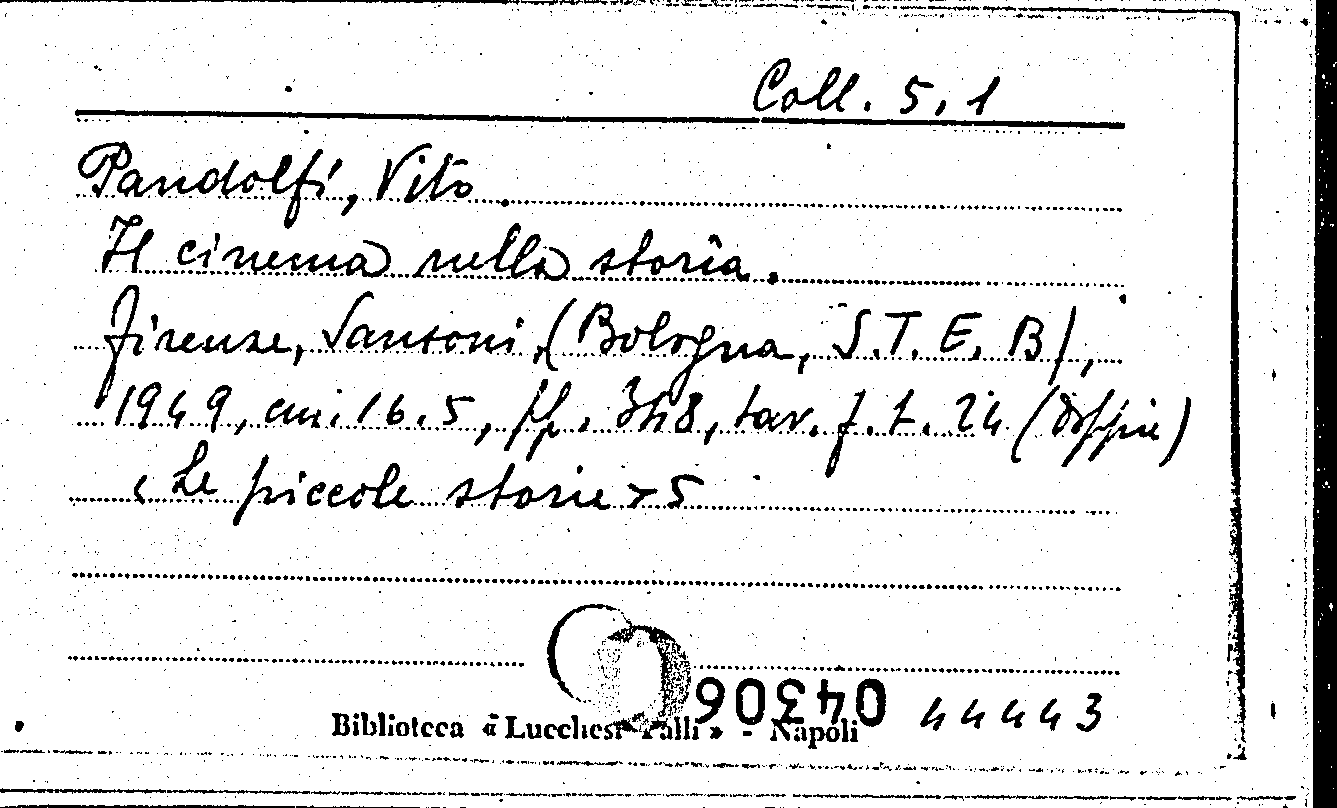 Coll. 5, 1
Pandolfi, Vito.
Il cinema nella storia.
Firenze, Sansoni, (Bologna, S.T.E.B),
1949, cm. 16.5, pp. 348, tav. f. t. 24 (doppie)
«Le piccole storie» 5
04306
44443
Biblioteca « Lucchesi Palli » - Napoli